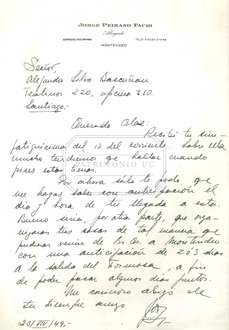 JORGE PEIRANO FACIO
Abogado
MONTEVIDEO
Señor
Alejandro Silva Bascuñan
Teatinos 220, oficina 210.
Santiago.-
Querido Alas:
Recibí tu sim-
patiquísima del 12 del corriente. Sobre ella
mucho tendremos que hablar cuando
pises estas tierras.
Por ahora sólo te pido que
me hagas saber con anticipación el
día y hora de tu llegada a esta.
Bueno sería, por otra parte, que orga-
nizaras tus cosas de tal manera que
pudieras venirte de Bs. As. a Montevideo
con una anticipación de 2 ó 3 días
a la salida del Formosa, a fin
de poder pasar algunos días juntos.
Mi cariñoso abrazo de
tu siempre amigo
20/VIII/49.-
PATRIMONIO UC